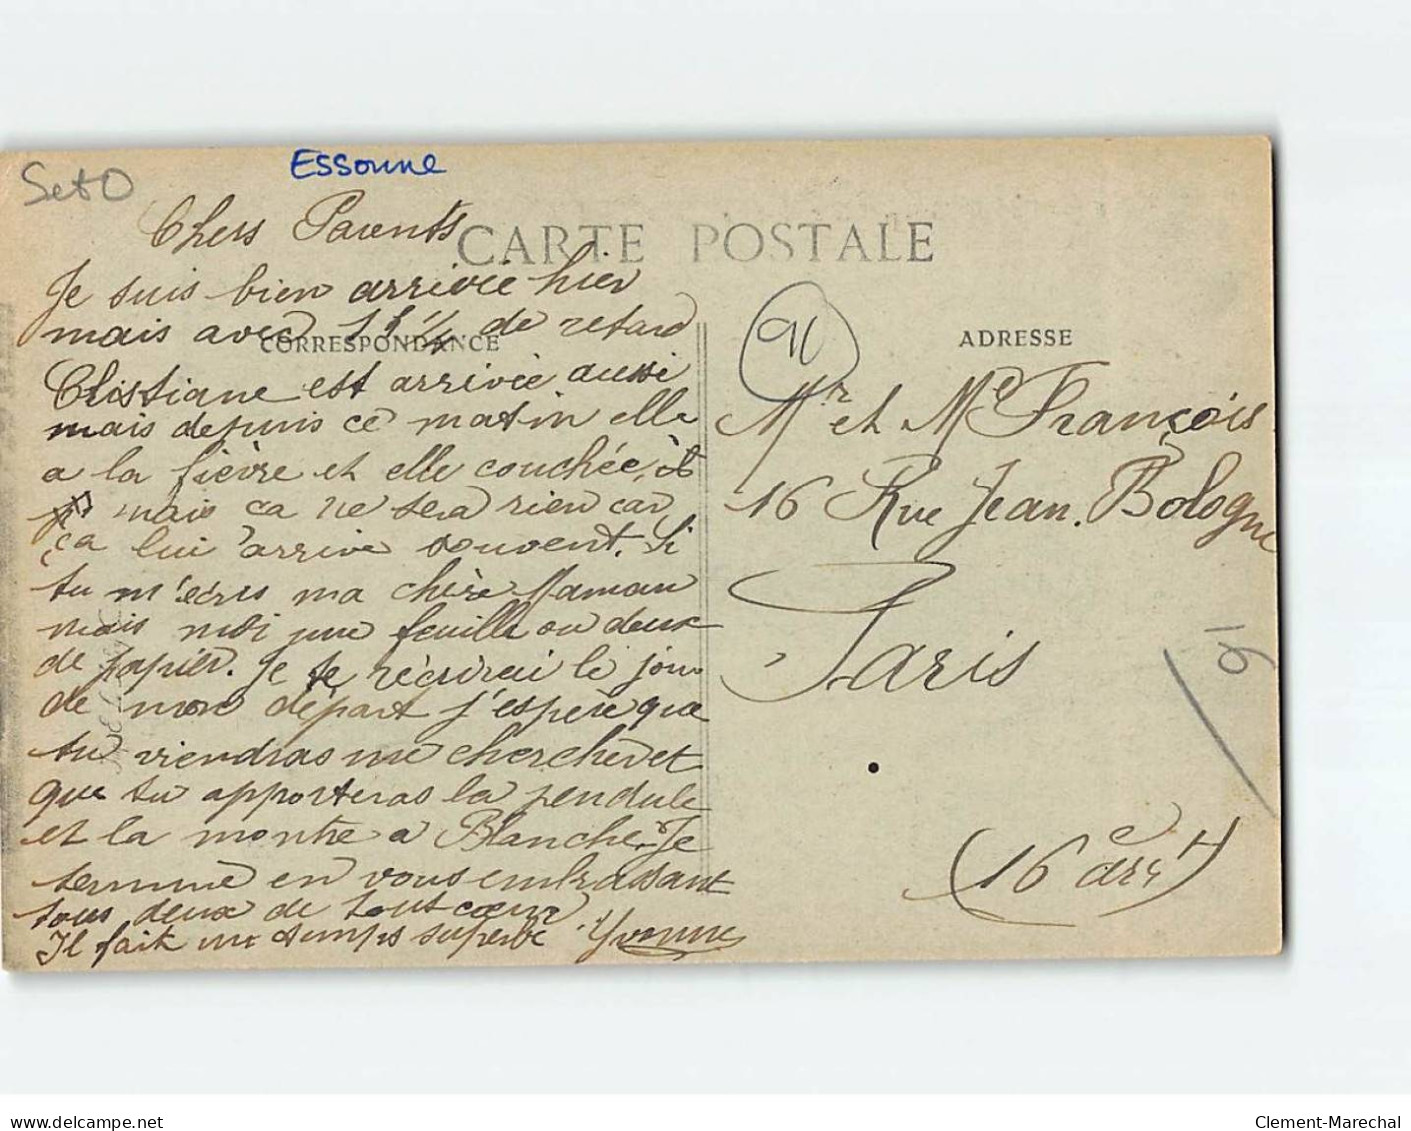 Essonne
Set O
Chers Parents
CARTE POSTALE
Je suis bien arrivée hier
mais avec 1h 1/4 de retard
CORRESPONDANCE
Christiane est arrivée aussi
mais depuis ce matin elle
a la fièvre et elle couchée,
mais ca ne sera rien car
ça lui arrive souvent. Si
tu m'écris ma chère Maman
mais moi une feuille ou deux
de papier. Je te récrirai le jour
de mon départ j'espère que
tu viendras me chercher et
que tu apporteras la pendule
et la montre a Blanche. Je
termine en vous embrassant
tous deux de tout cœur
Il fait un temps superbe Yvonne
91
ADRESSE
Mr et Me François
16 Rue Jean. Bologne
Paris
91
(16e arrt)
www.delcampe.net
Clement-Marechal